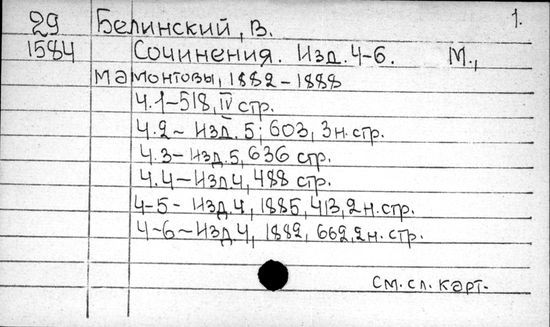 29 Белинский, В. 1.
1584 Сочинения. Изд. 4-6. М.,
мамонтовы, 1882-1888
ч.1-518, IV стр.
ч.2- Изд. 5; 603, 3н. стр.
ч.3- Изд. 5, 636 стр.
ч.4-Изд 4, 488 стр.
4-5- Изд. 4, 1885, 413, 2н. стр.
4-6-Изд. 4, 1882, 662, 2н. стр.
См. сл. карт.